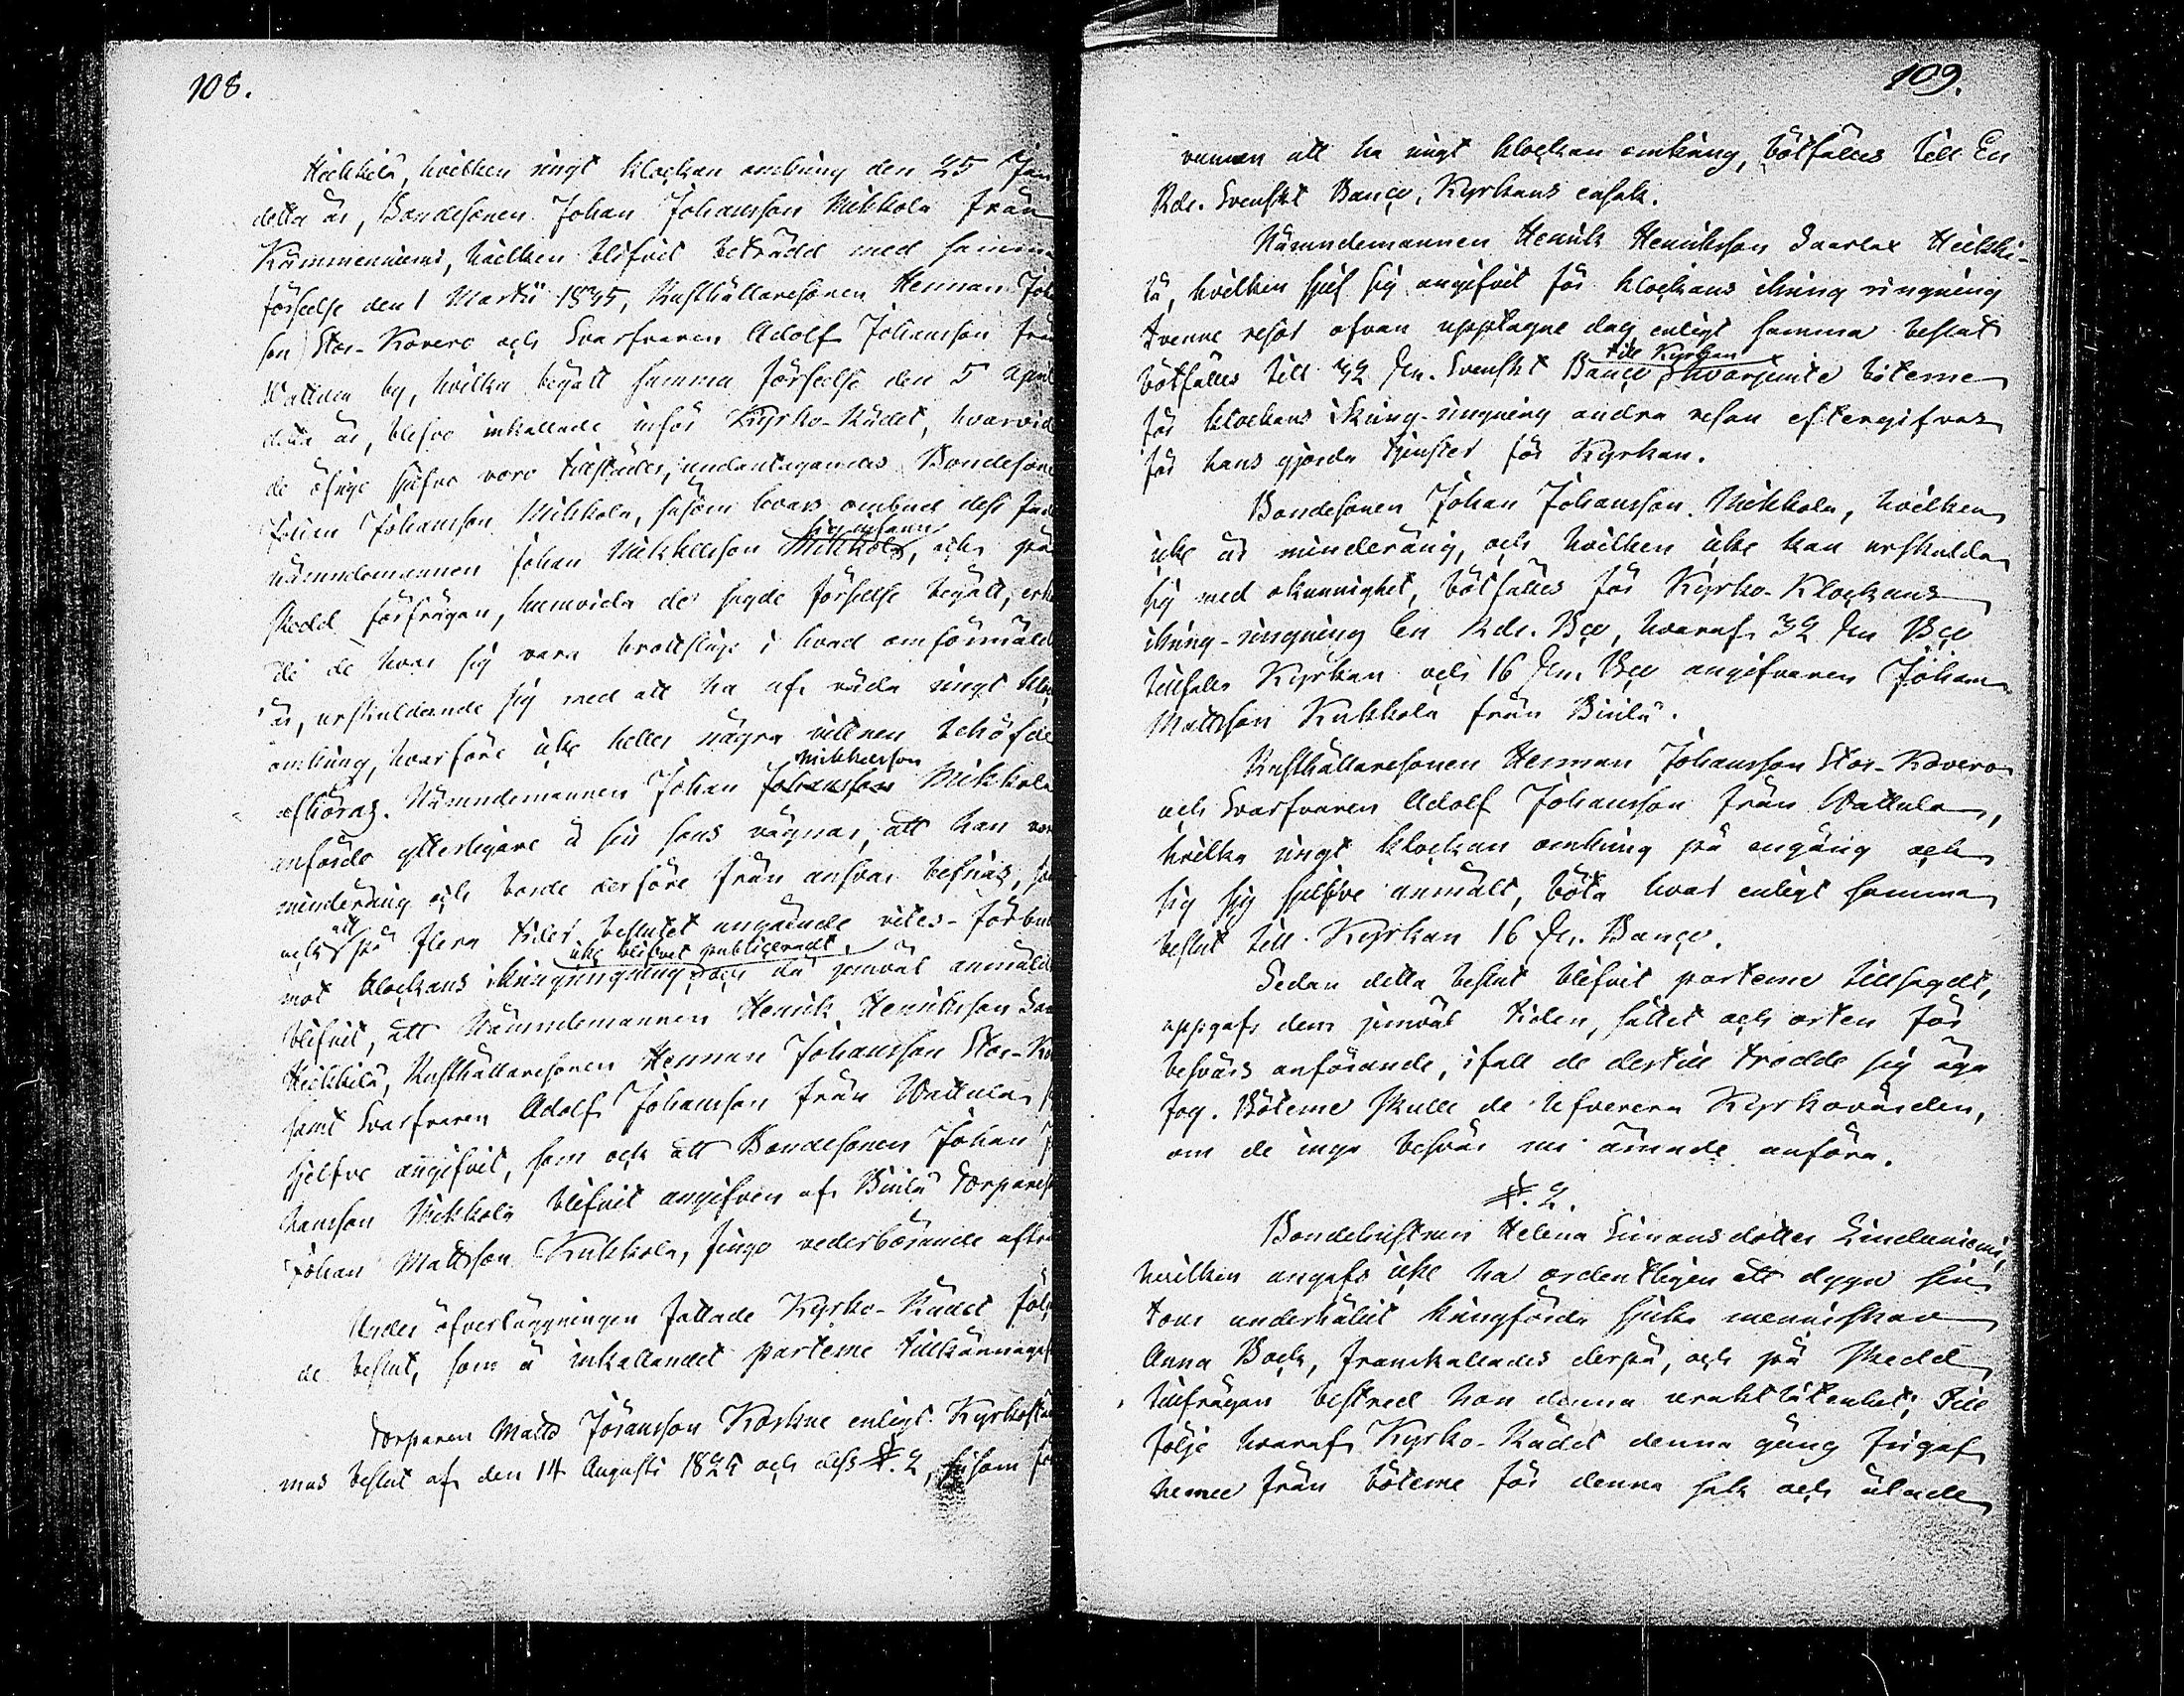 108.
Heikkilä, hvilken ringt klockan omkring den 25 Jan
detta år, Bondesonen Johan Johansson Mikkola från
Kämmenniemi, hvilken blifvit beträdd med samma
förseelse den 1 Martii 1835, Rusthållaresonen Herman Joh
son Stor-Kovero och Svarfvaren Adolf Johansson från
Wattula by, hvilka begått samma förseelse den 5 April
detta år, blefvo inkallade inför Kyrko-Rådet, hvarvid
de öfrige sjelfve voro tillstädes, undantagandes Bondesonen
Johan Johansson Mikkola, såsom hvars ombud dess fader
nämndemannen Johan Mikkelsson Mikkola, och på
skedd förfrågan, huruvida de sagde förseelse begått, erkän
de de hvar sig vara brottslige i hvad omförmäldt
är, urskuldande sig med att ha af våda ringt kloc
omkring, hvarföre icke heller några vittnen behöfde
afhöras. Nämndemannen Johan Johansson Mikkola
Mikkelsson
anförde ytterligare å sin sons vägnar, att han vore
minderårig och borde derföre från ansvar befrias,
och att på flera tider beslutet angående vites-förbud
mot klockans ikringringning icke blifvit publiceradt, och då jemväl anmäldt
blifvit, att Nämndemannen Henrik Henriksson
Heikkilä, Rusthållaresonen Herman Johansson Stor-Ko
samt Svarfvaren Adolf Johansson från Wattula
sjelfve angifvit, som ock att Bondesonen Johan Jo
hansson Mikkola blifvit angifven af Torpare
Johan Mattsson Kukkola, fingo vederbörande afträ
Under öfverläggningen fattade Kyrko-Rådet följ
de beslut, som å inkallandet parterne tillkännagafs
Torparen Matts Jöransson Koskue enligt Kyrkostäm
mas beslut af den 14 Augusti 1825 och dess §. 2, såsom för
109.
vunnen att ha ringt klockan omkring, bötfälles till En
Rdr. Svenskt Banco, Kyrkans ensak.
Nämndemannen Henrik Henriksson Heikki-
lä, hvilken sjelf sig angifvit för klockans ikring ringning
tvenne resor ofvan upptagne dag enligt samma beslut
bötfälles till 32 sk. Svenskt Banco till Kyrkan, hvarjemte böterne
för klockans ikring-ringning andra resan eftergifvas
för hans gjorda tjenster för Kyrkan.
Bondesonen Johan Johansson Mikkola, hvilken
icke är minderårig, och hvilken icke kan urskulda
sig med okunnighet, bötfälles för Kyrko-Klockans
ikring-ringning En Rdr. Bco, hvaraf 32 sk Bco
tillfaller Kyrkan och 16 sk. Bco angifvaren Johan
Mattsson Kukkola från
Rusthållaresonen Herman Johansson Stor-Kovero
och Svarfvaren Adolf Johansson från Wattula,
hvilka ringt klockan omkring på engång och
sig sig sjelfve anmält, böta hvar enligt samma
beslut till Kyrkan 16 sk. Banco.
Sedan detta beslut blifvit parterne tillsagdt,
uppgafs dem jemväl tiden, sättet och orten för
besvärs anförande, ifall de dertill trodde sig äga
fog. Böterne skulle de lefverera Kyrkovärden,
om de inga besvär nu ämnade anföra.
§. 2.
Bondehustrun Helena Simonsdotter Lindunieni,
hvilken angafs icke ha ordentligen ett dygn sin
tour underhållit kringförda sjuka menniskan
Anna Back, framkallades derpå, och på skedd
tillfrågan bestred hon denna uraktlåtenhet; till
följe hvaraf Kyrko-Rådet denna gång frigaf
henne från böterne för denna sak och ålade